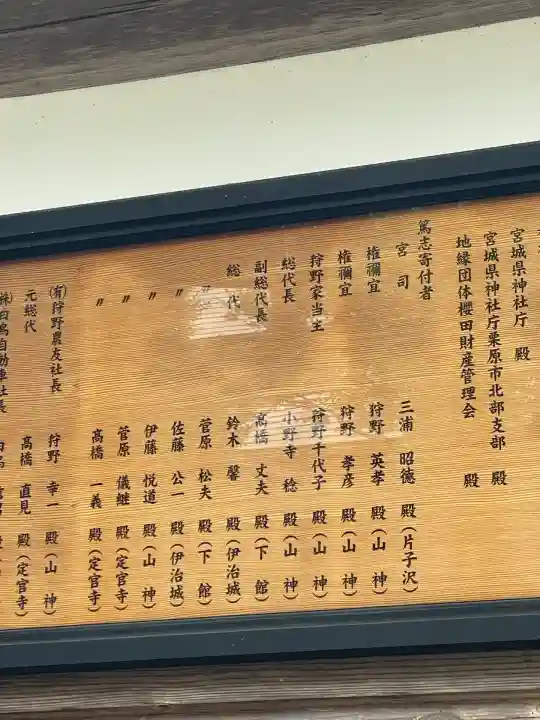 宮城県神社庁 殿
宮城県神社庁栗原市北部支部 殿
地縁団体櫻田財産管理会 殿
篤志寄付者
宮司 三浦 昭徳 殿(片子沢)
権禰宜 狩野 英孝 殿(山神)
権禰宜 狩野 孝彦 殿(山神)
狩野家当主 狩野千代子 殿(山神)
総代長 小野寺 稔 殿(山神)
副総代長 髙橋 丈夫 殿(下館)
総代 鈴木 馨 殿(伊治城)
〃 菅原 松夫 殿(下館)
〃 佐藤 公一 殿(伊治城)
〃 伊藤 悦道 殿(山神)
〃 菅原 儀継 殿(定官寺)
〃 髙橋 一義 殿(定官寺)
㈲狩野農友社長 狩野 幸一 殿(山神)
元総代 髙橋 直見 殿(定官寺)
自動車社長